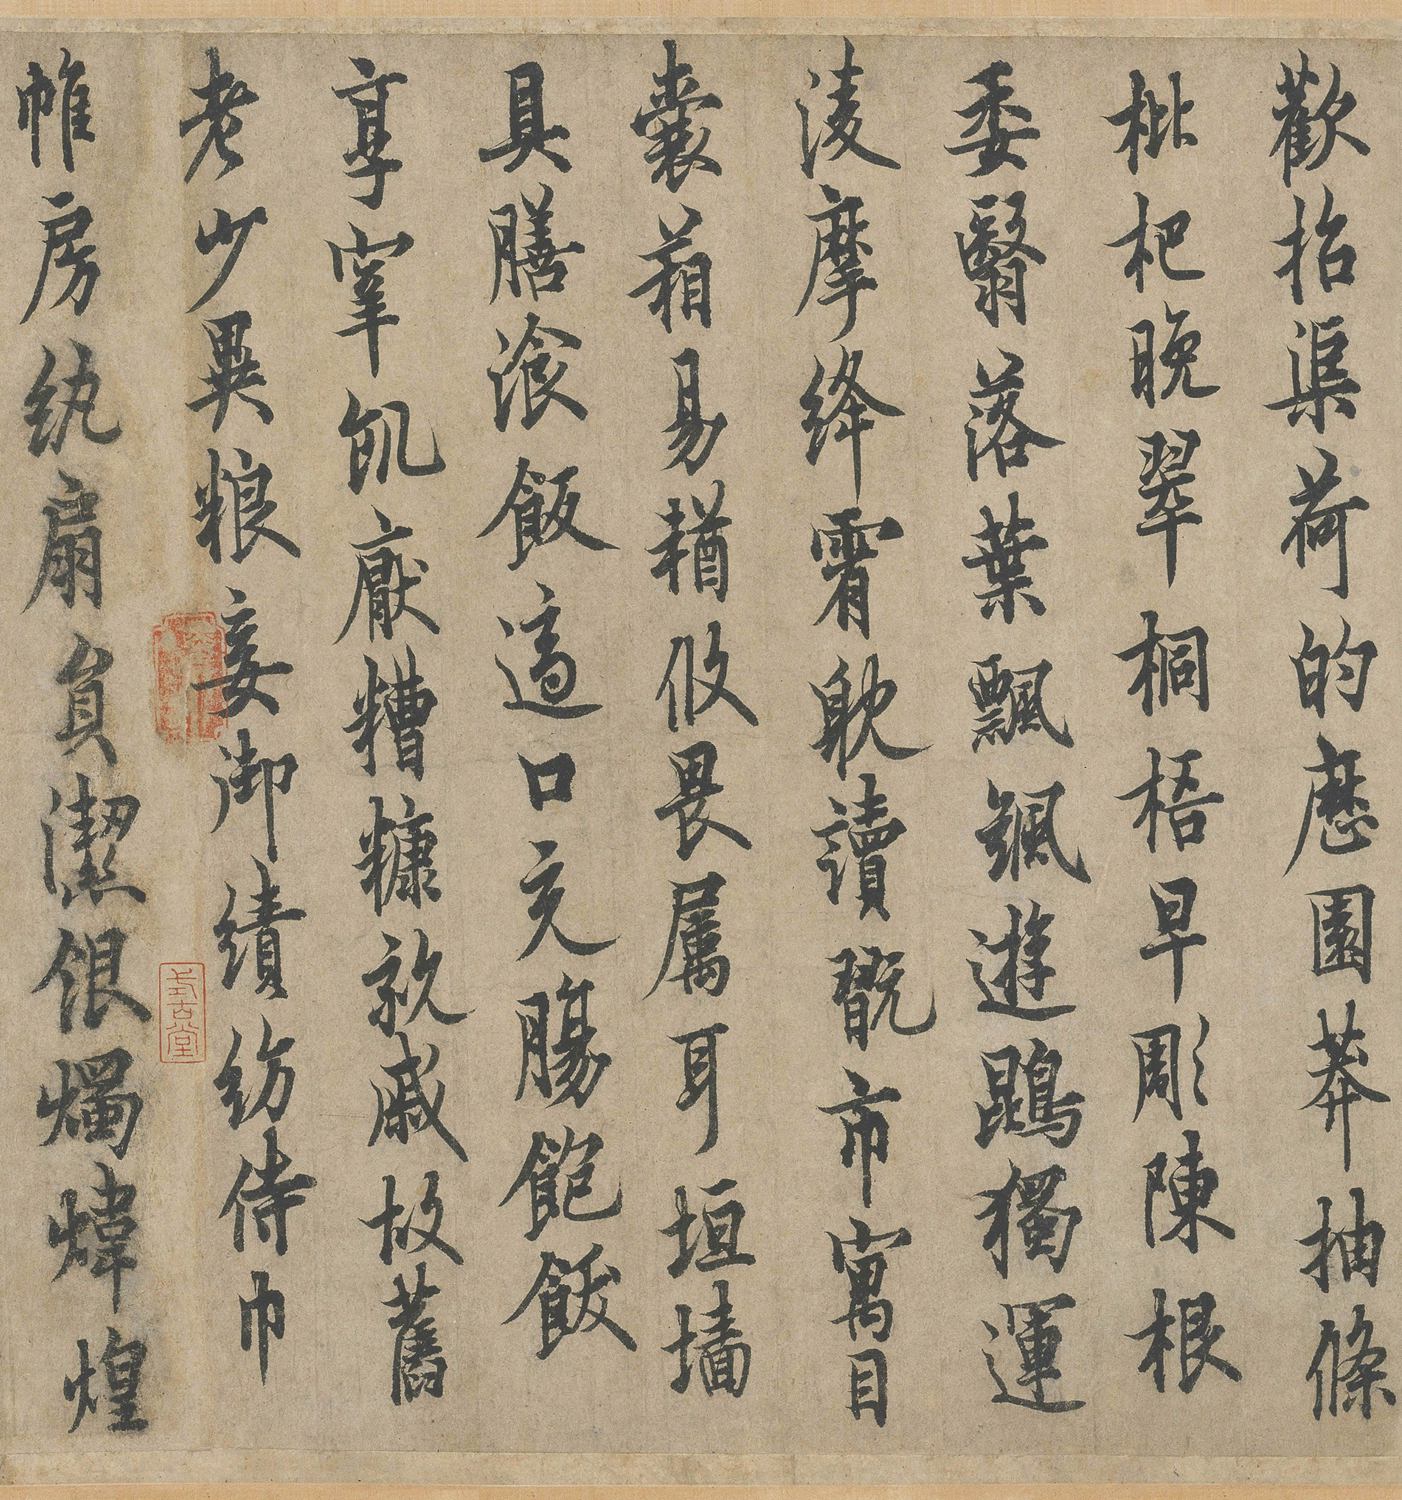 歡招渠荷的歷園莽抽條
枇杷晚翠梧桐早彫陳根
委翳落葉飄颻遊鵾獨運
凌摩絳霄耽讀翫市寓目
囊葙易輶攸畏属耳垣墻
具膳飡飯適口充腸飽飫
享宰飢厭糟糠親戚故舊
老少異粮妾御績紡侍巾
帷房紈扇員潔銀燭煒煌
式古堂